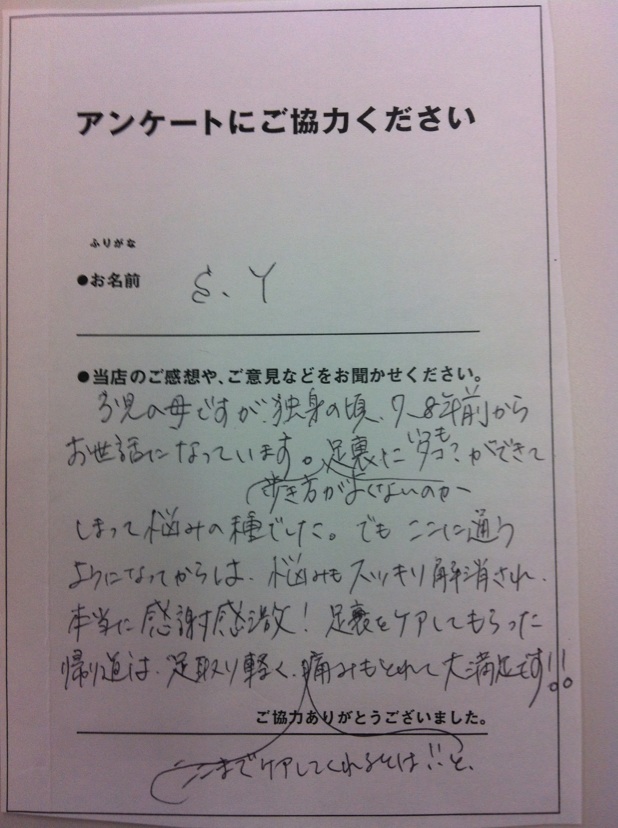 アンケートにご協力ください
ふりがな
●お名前
S、Y
●当店のご感想や、ご意見などをお聞かせください。
3児の母ですが、独身の頃、7、8年前から
お世話になっています。足裏にいつもタコ?ができて
歩き方がよくないのか
しまって悩みの種でした。でもここに通う
ようになってからは、悩みもスッキリ解消され、
本当に感謝感激!足裏をケアしてもらった
帰り道は、足取り軽く、痛みもとれて大満足です!!
ご協力ありがとうございました。
ここまでケアしてくれるとは!!と、